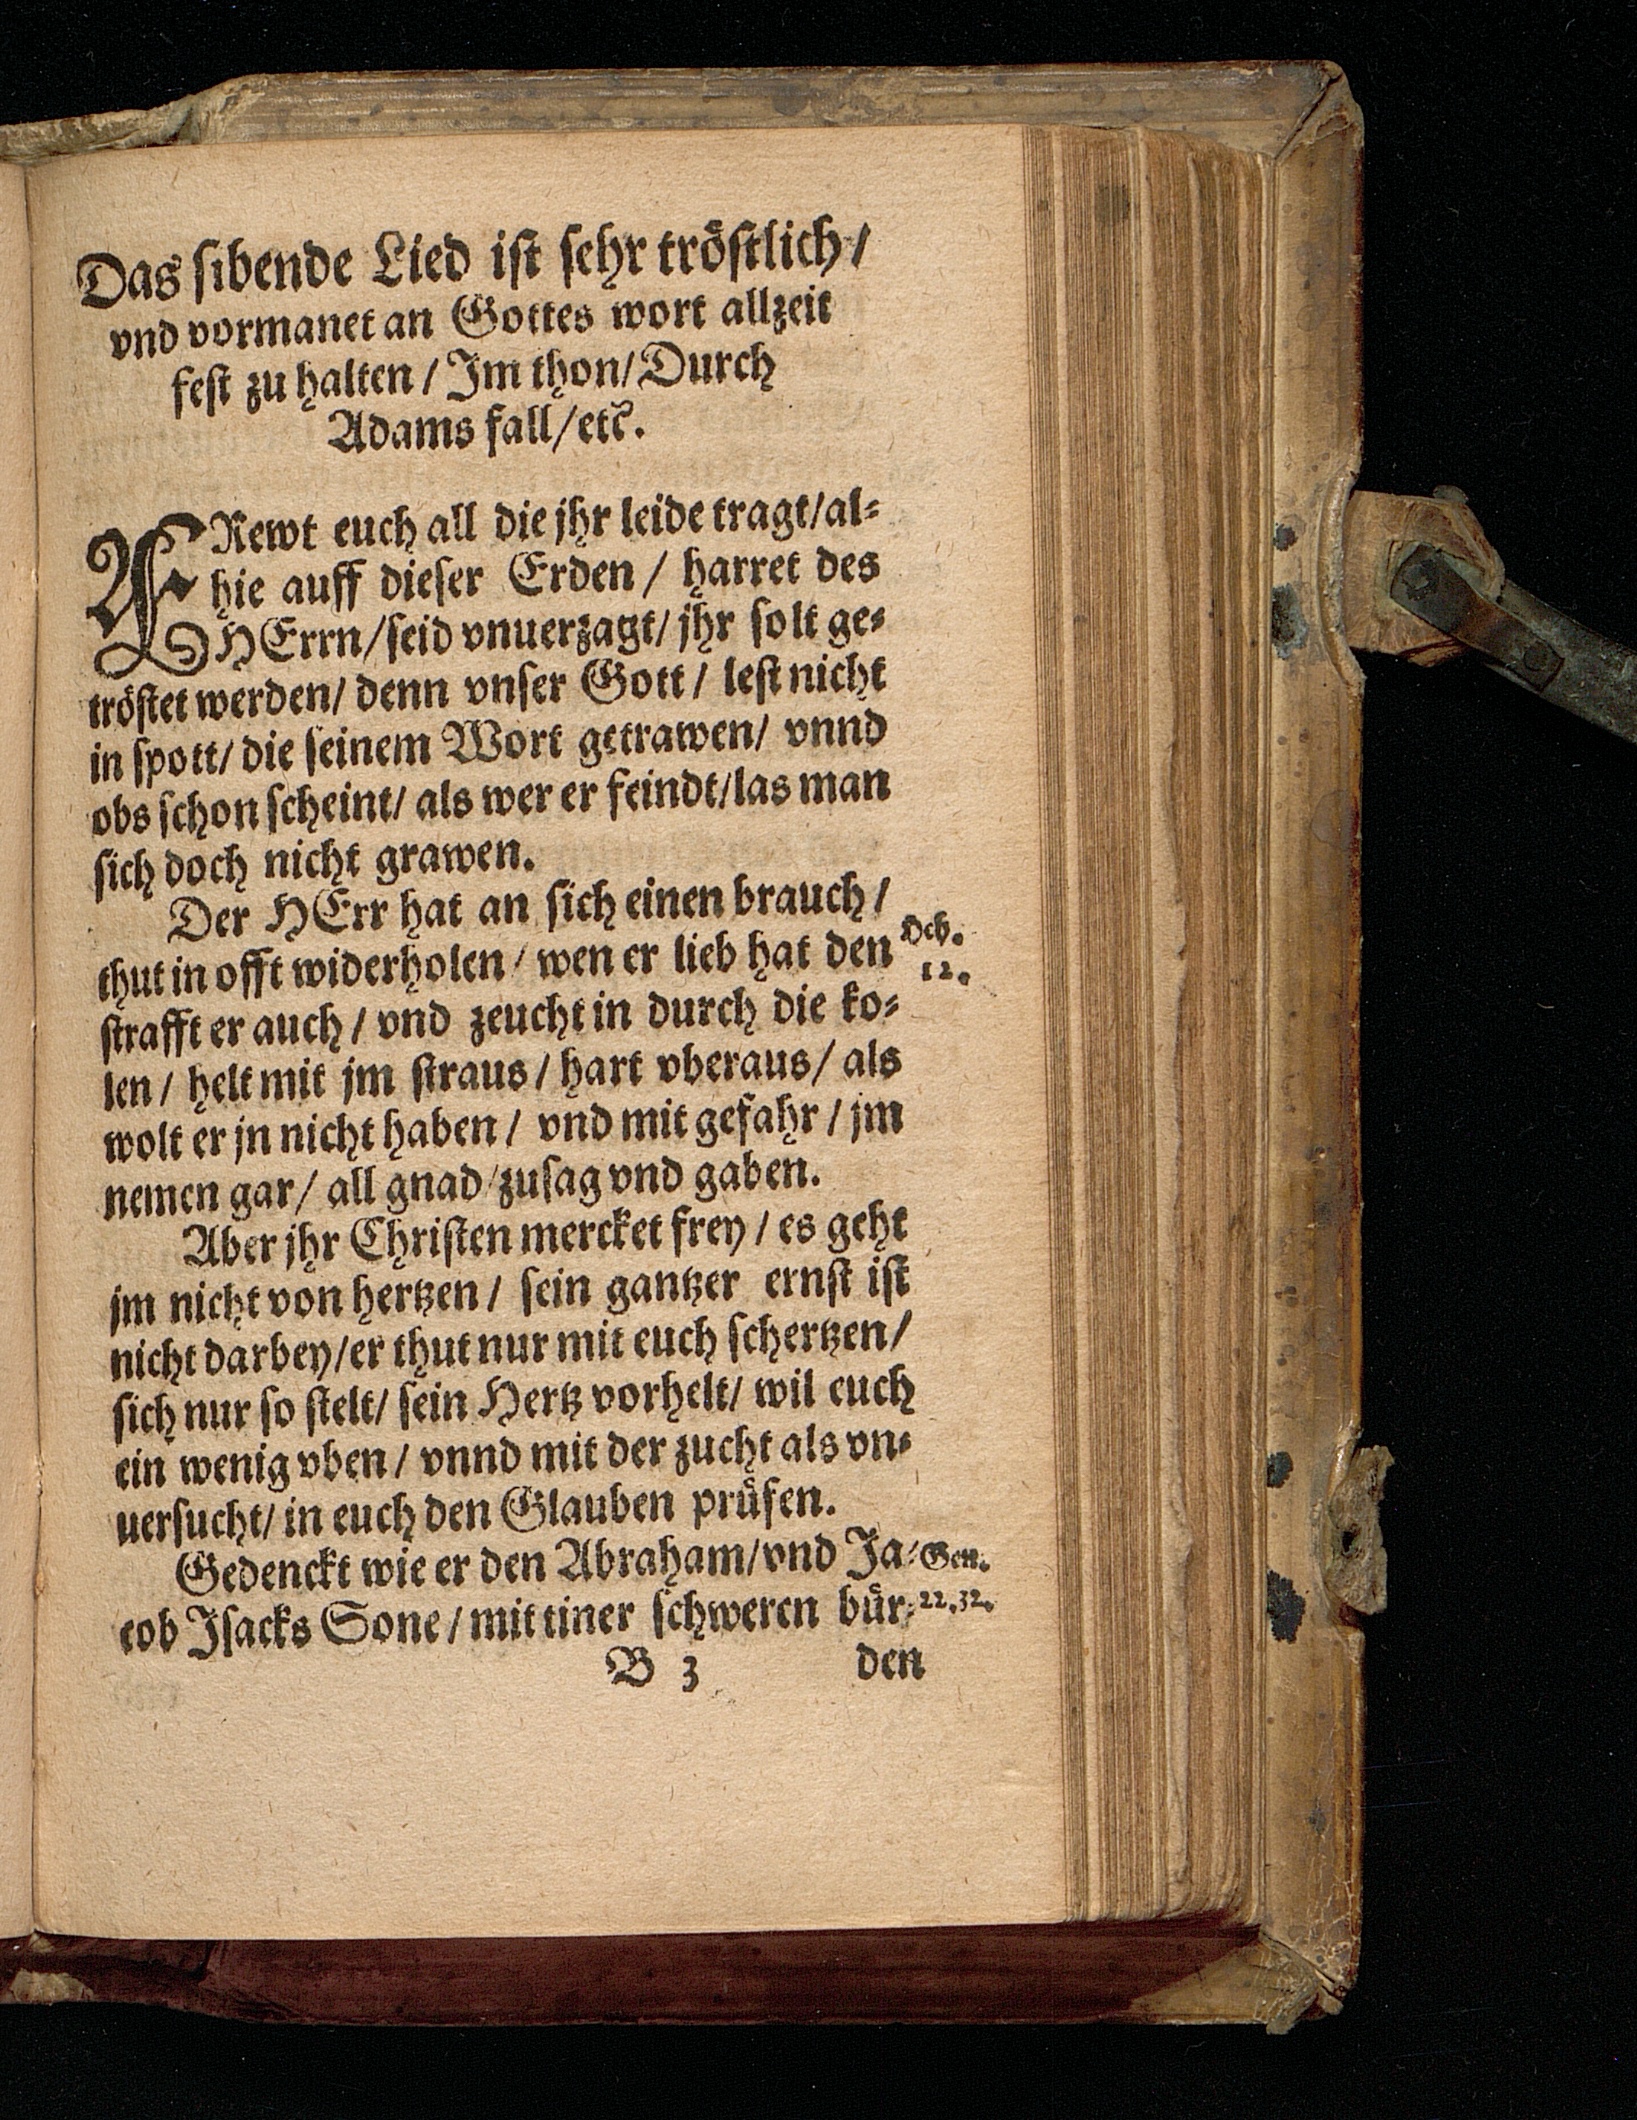 Das sibende Lied ist sehr tröstlich/
vnd vormanet an Gottes wort allzeit
fest zu halten / Im thon/ Durch
Adams fall/etc.
FRewt euch all die jhr leide tragt/al⸗
hie auff dieser Erden / harret des
HErrn/seid vnuerzagt/ jhr solt ge⸗
tröstet werden/ denn vnser Gott / lest nicht
in spott/ die seinem Wort getrawen/ vnnd
obs schon scheint/ als wer er feindt/las man
sich doch nicht grawen.
Der HErr hat an sich einen brauch /
thut in offt widerholen / wen er lieb hat den Heb.
strafft er auch / vnd zeucht in durch die ko⸗ 12.
len / helt mit jm straus / hart vberaus / als
wolt er jn nicht haben / vnd mit gefahr / jm
nemen gar / all gnad/zusag vnd gaben.
Aber jhr Christen mercket frey / es geht
jm nicht von hertzen / sein gantzer ernst ist
nicht darbey/er thut nur mit euch schertzen/
sich nur so stelt/ sein Hertz vorhelt/ wil euch
ein wenig vben / vnnd mit der zucht als vn⸗
uersucht/ in euch den Glauben prüfen.
Gedenckt wie er den Abraham/vnd Ja⸗ Gen.
cob Isacks Sone / mit einer schweren bür⸗ 22.32.
B 3 den